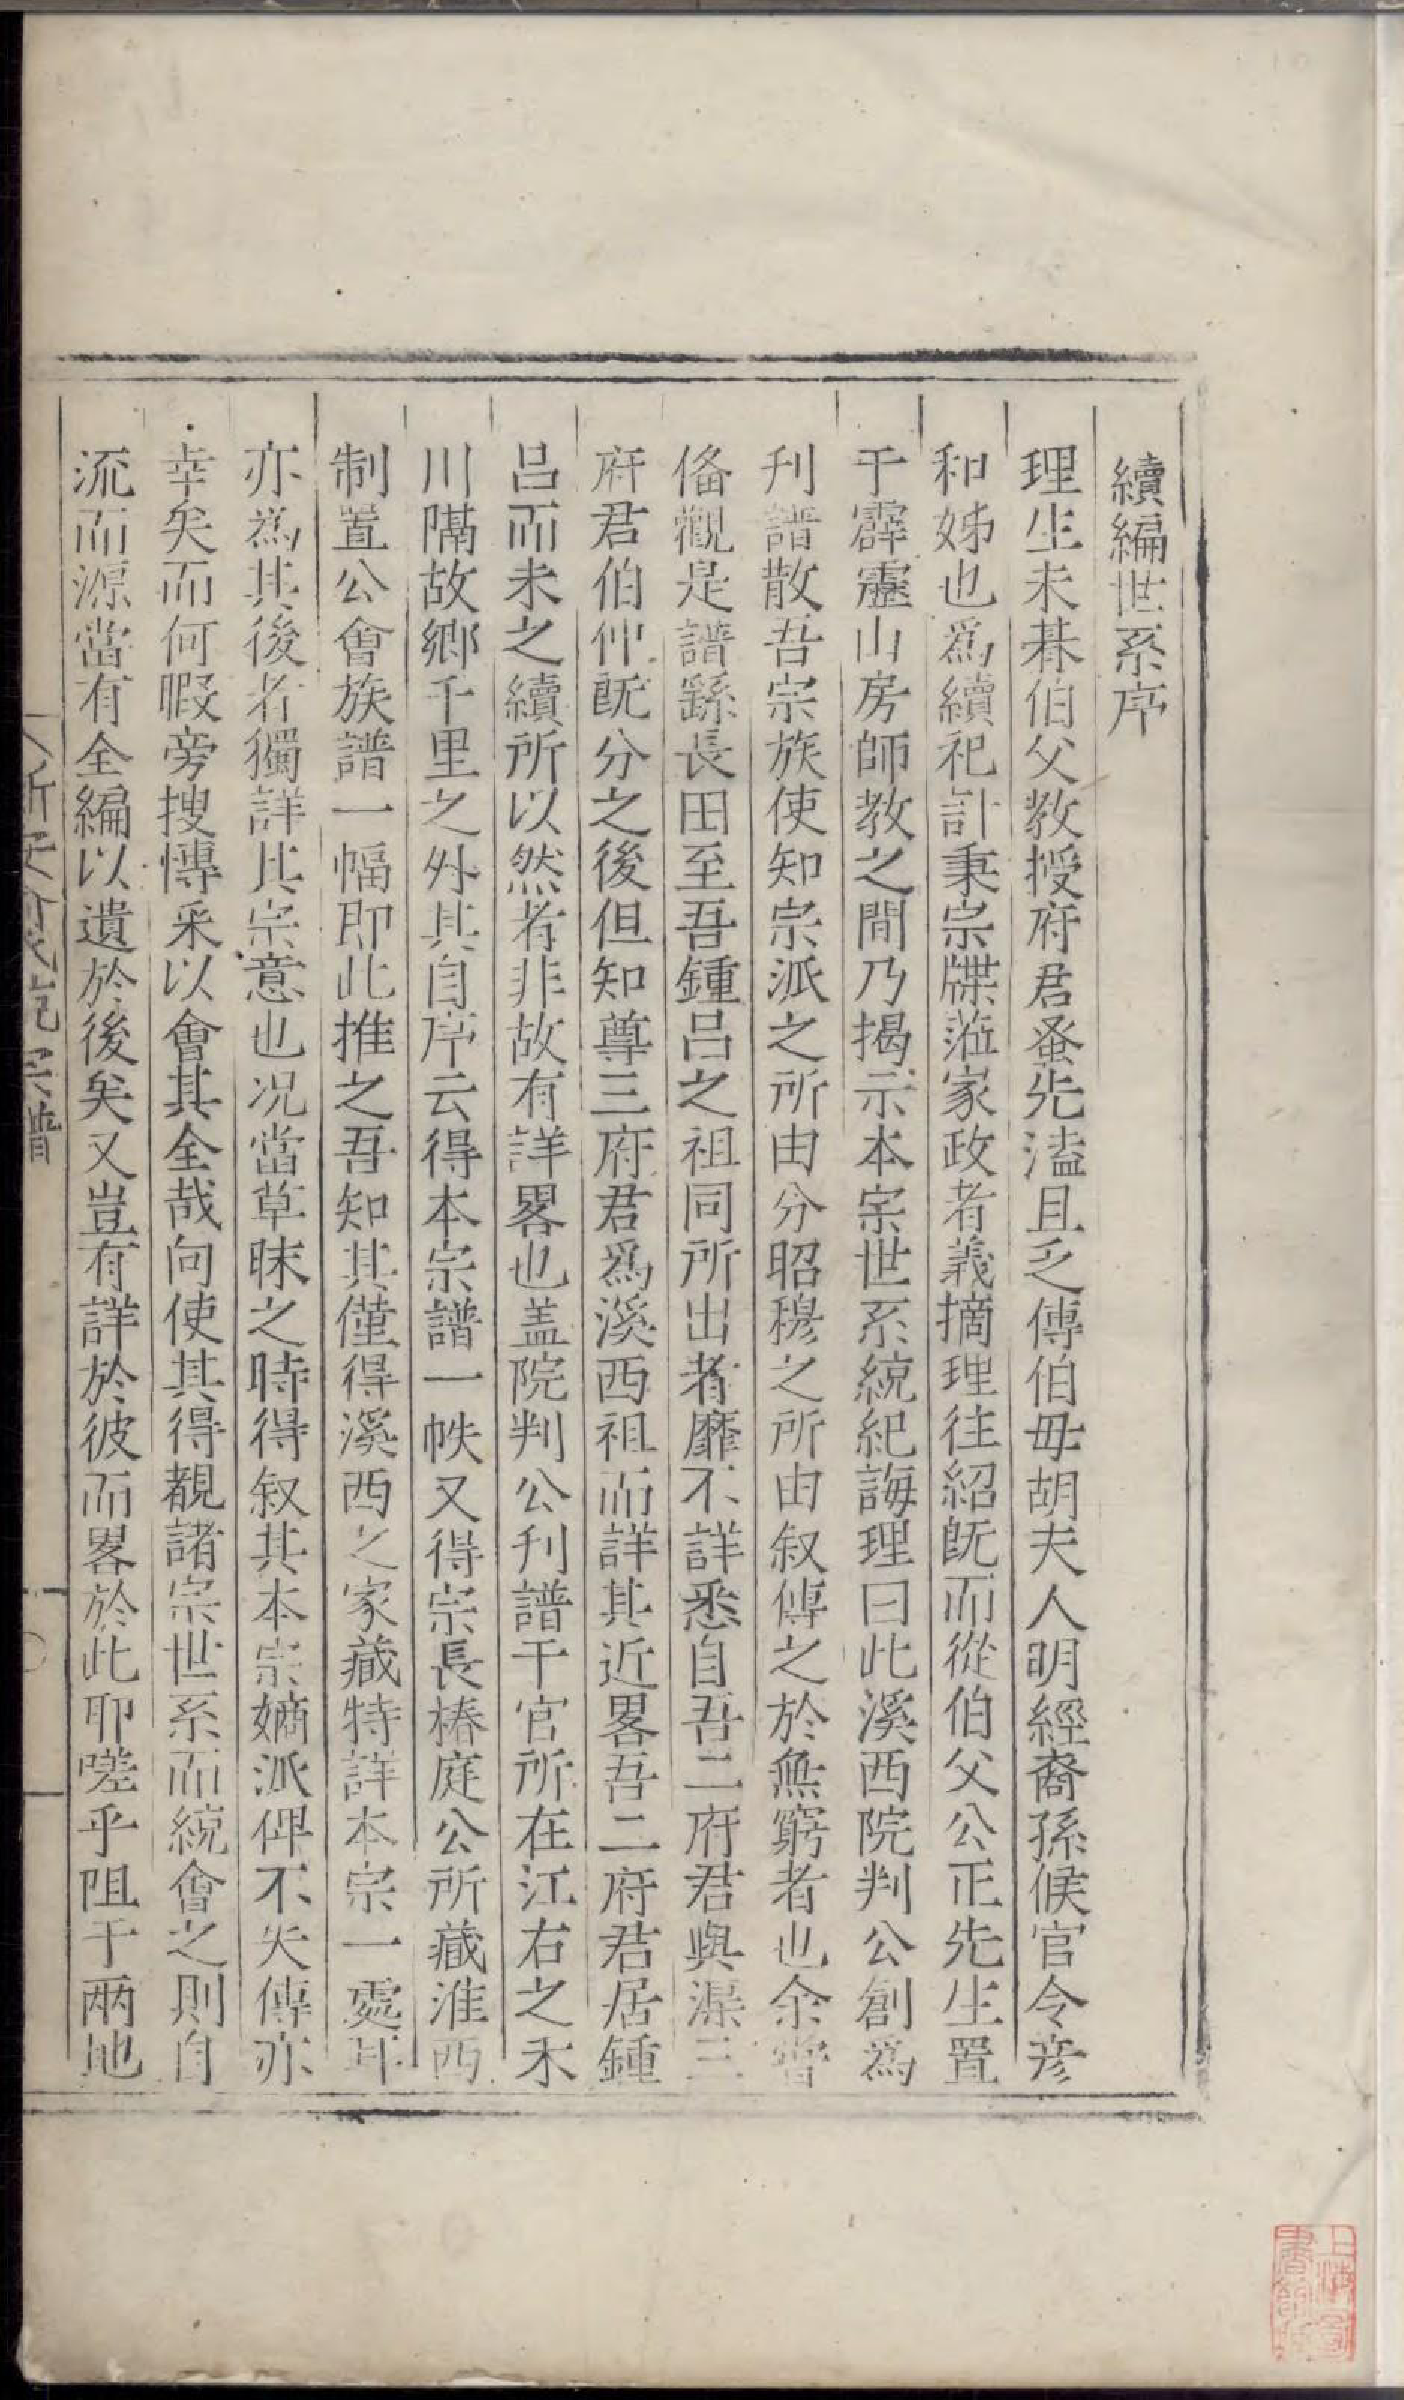 續編世系序
理生未朞伯父教授府君蚤先溘且乏傳伯毋胡夫人明經裔孫候官令彦
和姊也爲續祀計秉宗牒蒞家政者義摘理徃紹旣而從伯父公正先生置
于霹靂山房師教之間乃揭示本宗世系統紀誨理曰此溪西院判公創爲
刋譜散吾宗族使知宗派之所由分昭穆之所由叙傳之於無窮者也余嘗
俻觀是譜繇長田至吾鍾吕之祖同所出者靡不詳悉自吾二府君與渠三
府君伯仲旣分之後但知尊三府君爲溪西祖而詳其近畧吾二府君居鍾
吕而未之續所以然者非故有詳畧也盖院判公刋譜于官所在江右之禾
川隔故郷千里之外其自序云得本宗譜一帙又得宗長椿庭公所藏淮西
制置公會族譜一幅即此推之吾知其僅得溪西之家藏特詳本宗一處耳
亦爲其後者獨詳比宗意也况當草昧之時得叙其本宗嫡派俾不失傳亦
幸矣而何暇旁搜慱采以會其全哉向使其得覩諸宗世系而統會之則自
流而源當有全編以遺於後矣又豈有詳於彼而畧於此耶嗟乎阻于兩地